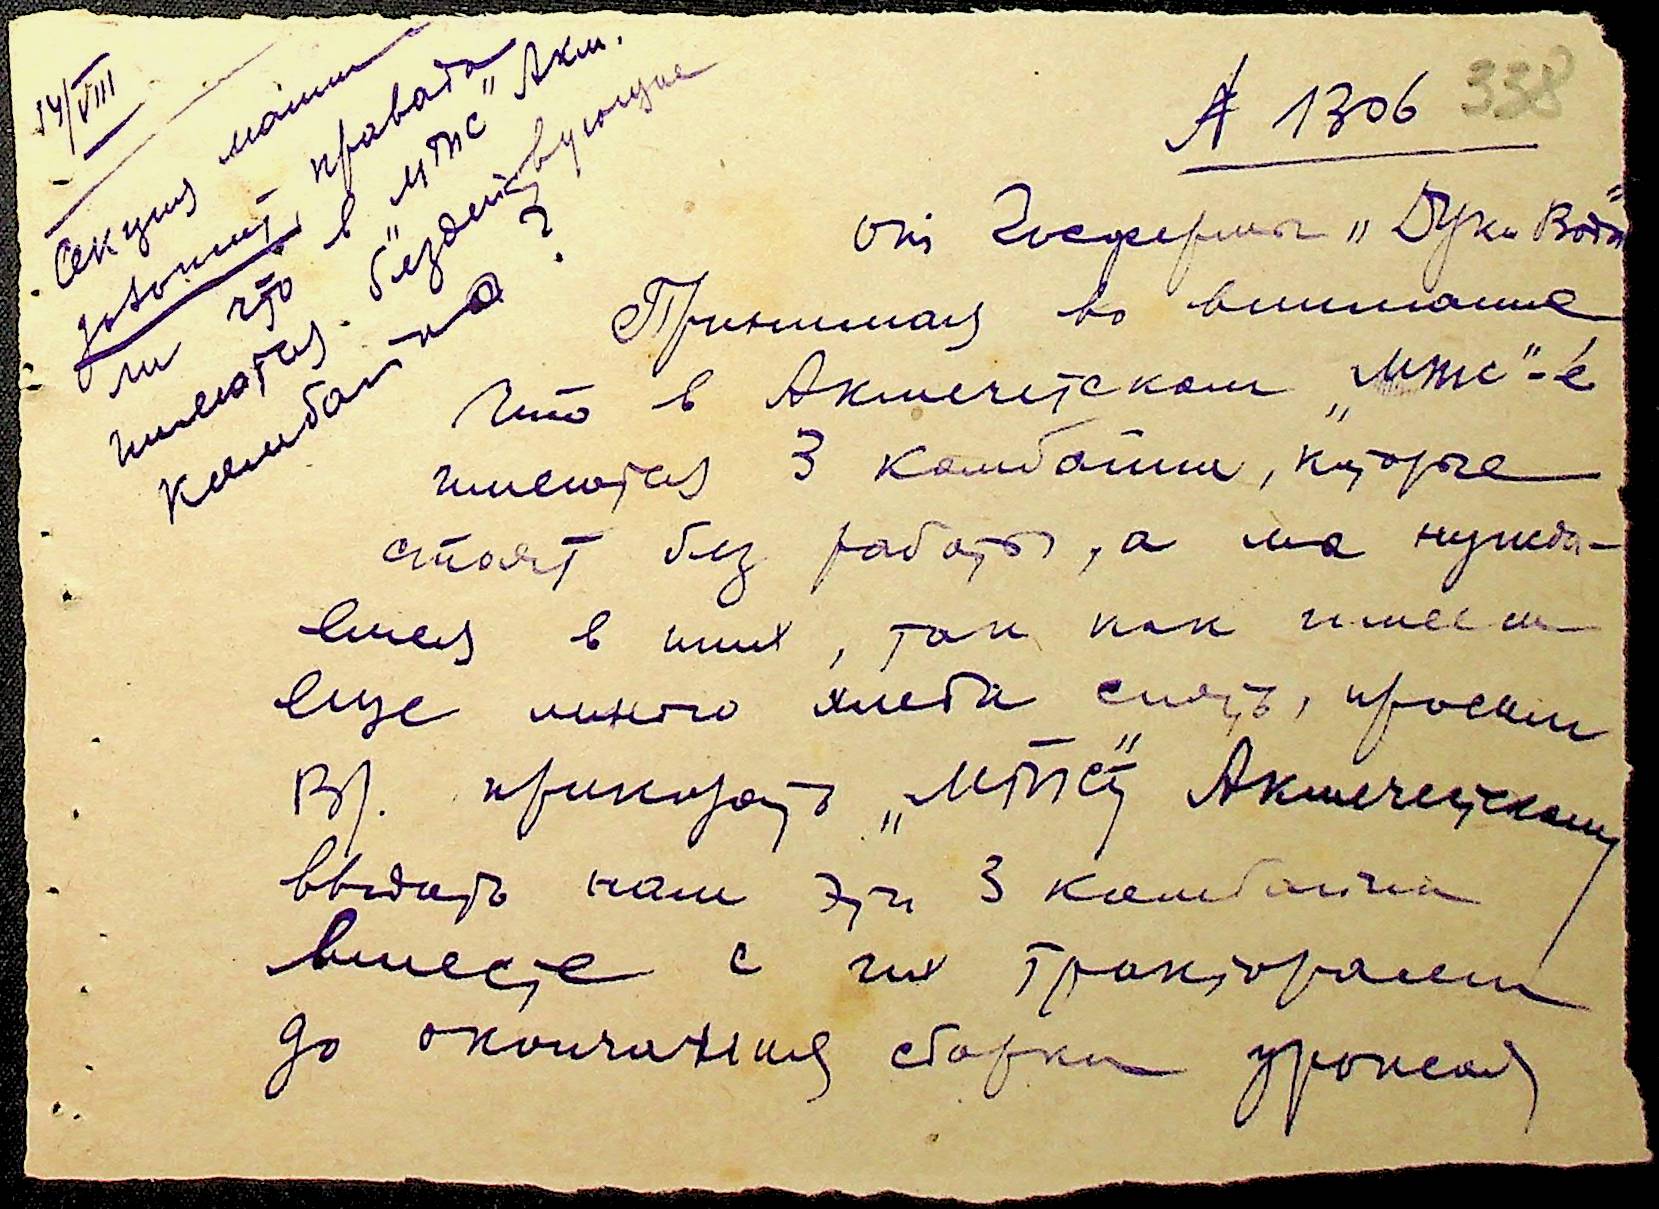 14/VIII
Секция машин
позвонит, правда
ли что в „МТС" Акм.
имеются бездействующие
комбайна ?
А 1306 338
от Госфермы „Дука Водэ"
Принимая во внимание
что в Акмечетском „МТС"-е
имеются 3 комбайни, которые
стоят без работы, а мы нужда-
емся в них, так как имеем
еще много хлеба снять, просим
Вы. приказать „МТС" Акмечетскому
выдать нам эти 3 комбайна
вместе с их тракторами
до окончания сборки урожая